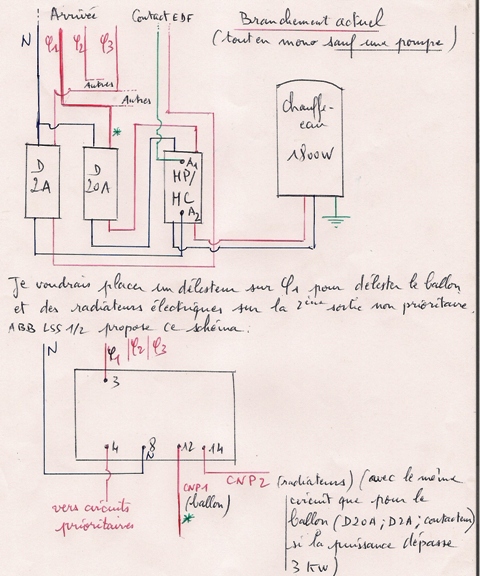 Arrivée
Contact EDF
Branchement actuel
(tout en mono sauf une pompe)
N
φ1 φ2 φ3
Autres
Autres
*
D
2A
D
20A
A1
HP/
HC
A2
Chauffe-
eau
1800W
Je voudrais placer un délesteur sur φ1 pour délester le ballon
et des radiateurs électriques sur la 2ième sortie non prioritaire.
ABB LSS 1/2 propose ce schéma:
N
φ1 |φ2|φ3
3
4
8
N
12
14
vers circuits
prioritaires
CNP1
(ballon)
*
CNP2 (radiateurs) (avec le même
circuit que pour le
ballon (D20A; D2A; contacteur)
si la puissance dépasse
3 KW)